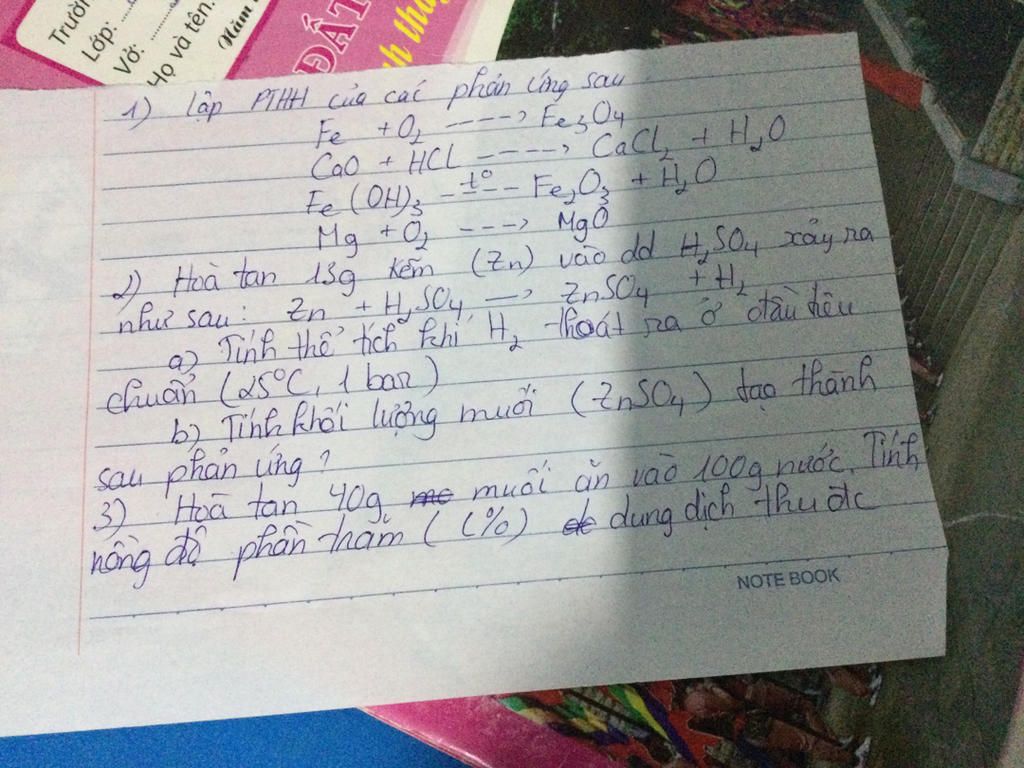 Trườn
Lớp:
Vở:
Họ và tên:
Năm
ĐẤT
1) lập PTHH của các phản ứng sau
Fe + O₂ ----> Fe₃O₄
CaO + HCl ----> CaCl₂ + H₂O
Fe(OH)₃ --t°-- Fe₂O₃ + H₂O
Mg + O₂ ---> MgO
2) Hoà tan 13g kẽm (Zn) vào dd H₂SO₄ xảy ra
như sau: Zn + H₂SO₄ -> ZnSO₄ + H₂
a) Tính thể tích khí H₂ thoát ra ở đầu têu
chuẩn (25°C, 1 bar)
b) Tính khối lượng muối (ZnSO₄) tạo thành
sau phản ứng?
3) Hoà tan 40g muối ăn vào 100g nước. Tính
nồng độ phần trăm (C%) dung dịch thu đc
NOTE BOOK